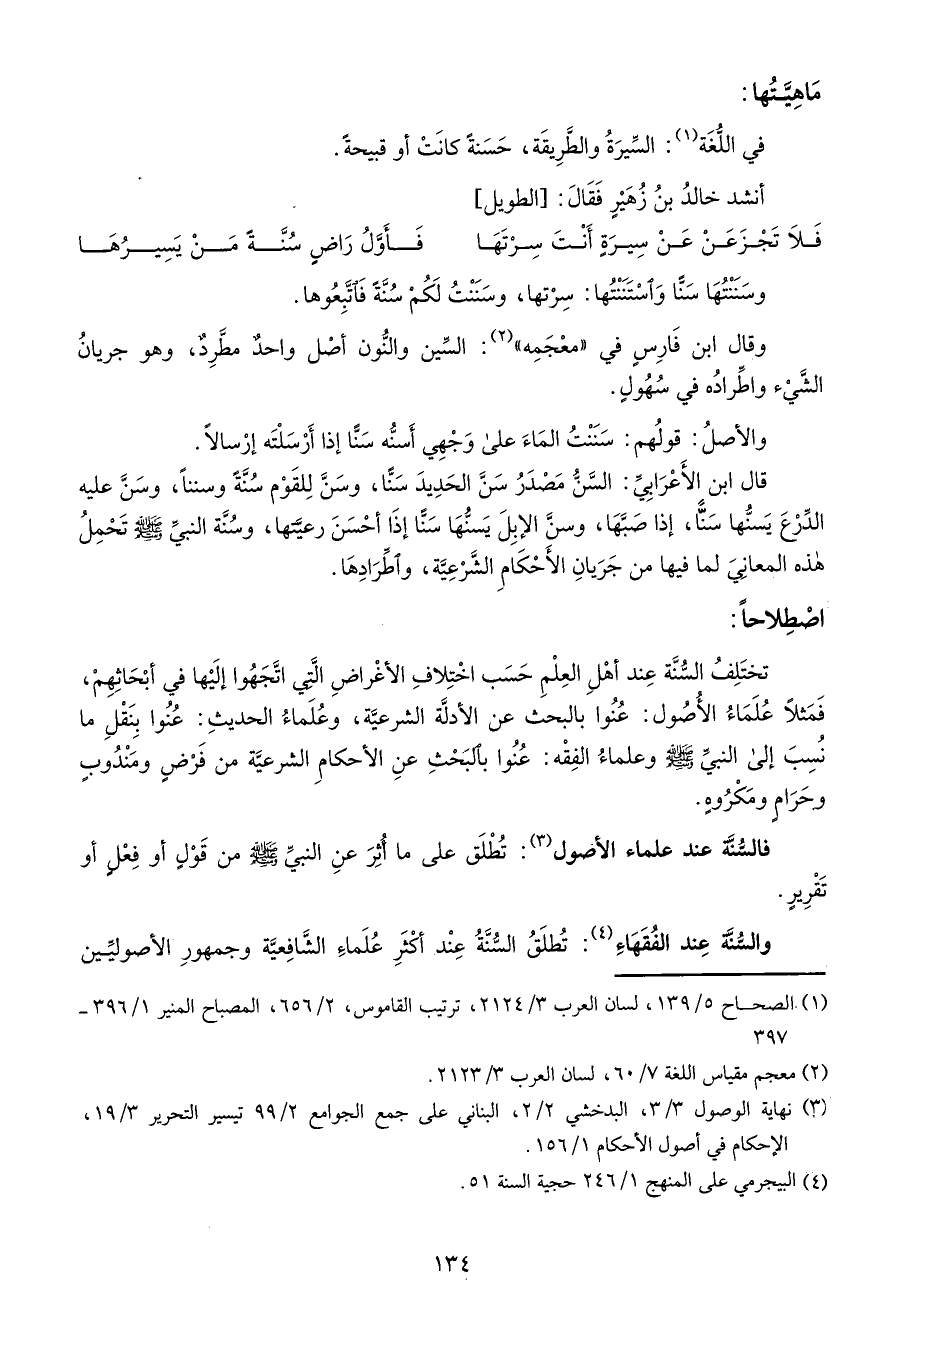 مَاهِيَّتُها:
في اللُّغَة(١): السِّيرَةُ والطَّرِيقَة، حَسَنةً كانَتْ أو قبيحةً.
أنشد خالدُ بنُ زُهَيْرٍ فَقَالَ: [الطويل]
فَلَا تَجْزَعَنْ عَنْ سِيرَةٍ أَنْتَ سِرْتَهَا فَأَوَّلُ رَاضٍ سُنَّةً مَنْ يَسِيرُهَا
وسَنَنْتُهَا سَنًّا وَٱسْتَنَنْتُها: سِرْتها، وسَنَنْتُ لَكُمْ سُنَّةً فَٱتَّبِعُوها.
وقال ابن فَارِسٍ في «معْجَمِه»(٢): السِّين والنُّون أصْل واحدٌ مطَّرِدٌ، وهو جريانُ
الشَّيْء واطِّرادُه في سُهُولٍ.
والأصلُ: قولُهم: سَنَنْتُ المَاءَ علىٰ وَجْهِي أَسنُّه سَنًّا إذا أَرْسَلْتَه إرْسالاً.
قال ابن الأَعْرَابِيِّ: السَّنُّ مَصْدَرُ سَنَّ الحَدِيدَ سَنًّا، وسَنَّ لِلقَوْم سُنَّةً وسنناً، وسَنَّ عليه
الدِّرْعَ يَسنُّها سَنًّا، إذا صَبَّهَا، وسنَّ الإبِلَ يَسنُّهَا سَنًّا إذَا أحْسَنَ رعيَتَها، وسُنَّة النبيِّ ﷺ تَحْمِلُ
هٰذه المعانِيَ لما فيها من جَرَيانِ الأَحْكَامِ الشَّرْعِيَّة، وٱطِّرَادِهَا.
اصْطِلاحاً:
تختَلِفُ السُّنَّة عِند أهْلِ العِلْمِ حَسَب اخْتِلافِ الأغْراضِ الَّتِي اتَّجَهُوا إلَيْها في أبْحَاثِهِمْ،
فَمَثلاً عُلَمَاءُ الأُصُول: عُنُوا بالبحث عن الأدلَّة الشرعيَّة، وعُلَماءُ الحديثِ: عُنُوا بِنَقْلِ ما
نُسِبَ إلىٰ النبيِّ ﷺ وعلماءُ الفِقْه: عُنُوا بٱلبَحْثِ عنِ الأحكامِ الشرعيَّة من فَرْضٍ ومَنْدُوبٍ
وحَرَامٍ ومَكْرُوهٍ.
فالسُّنَّة عند علماء الأصول(٣): تُطْلَق على ما أُثِرَ عنِ النبيِّ ﷺ من قَوْلٍ أو فِعْلٍ أو
تَقْرِيرٍ.
والسُّنَّة عِند الفُقَهَاءِ(٤): تُطلَقُ السُّنَّةُ عِنْد أكْثَرِ عُلَماءِ الشَّافعِيَّة وجمهورِ الأصوليِّين
(١) الصحاح ٥/ ١٣٩، لسان العرب ٣/ ٢١٢٤، ترتيب القاموس، ٢/ ٦٥٦، المصباح المنير ١/ ٣٩٦ ـ
٣٩٧
(٢) معجم مقياس اللغة ٧/ ٦٠، لسان العرب ٣/ ٢١٢٣.
(٣) نهاية الوصول ٣/ ٣، البدخشي ٢/ ٢، البناني على جمع الجوامع ٢/ ٩٩ تيسير التحرير ٣/ ١٩،
الإحكام في أصول الأحكام ١/ ١٥٦.
(٤) البيجرمي على المنهج ١/ ٢٤٦ حجية السنة ٥١.
١٣٤